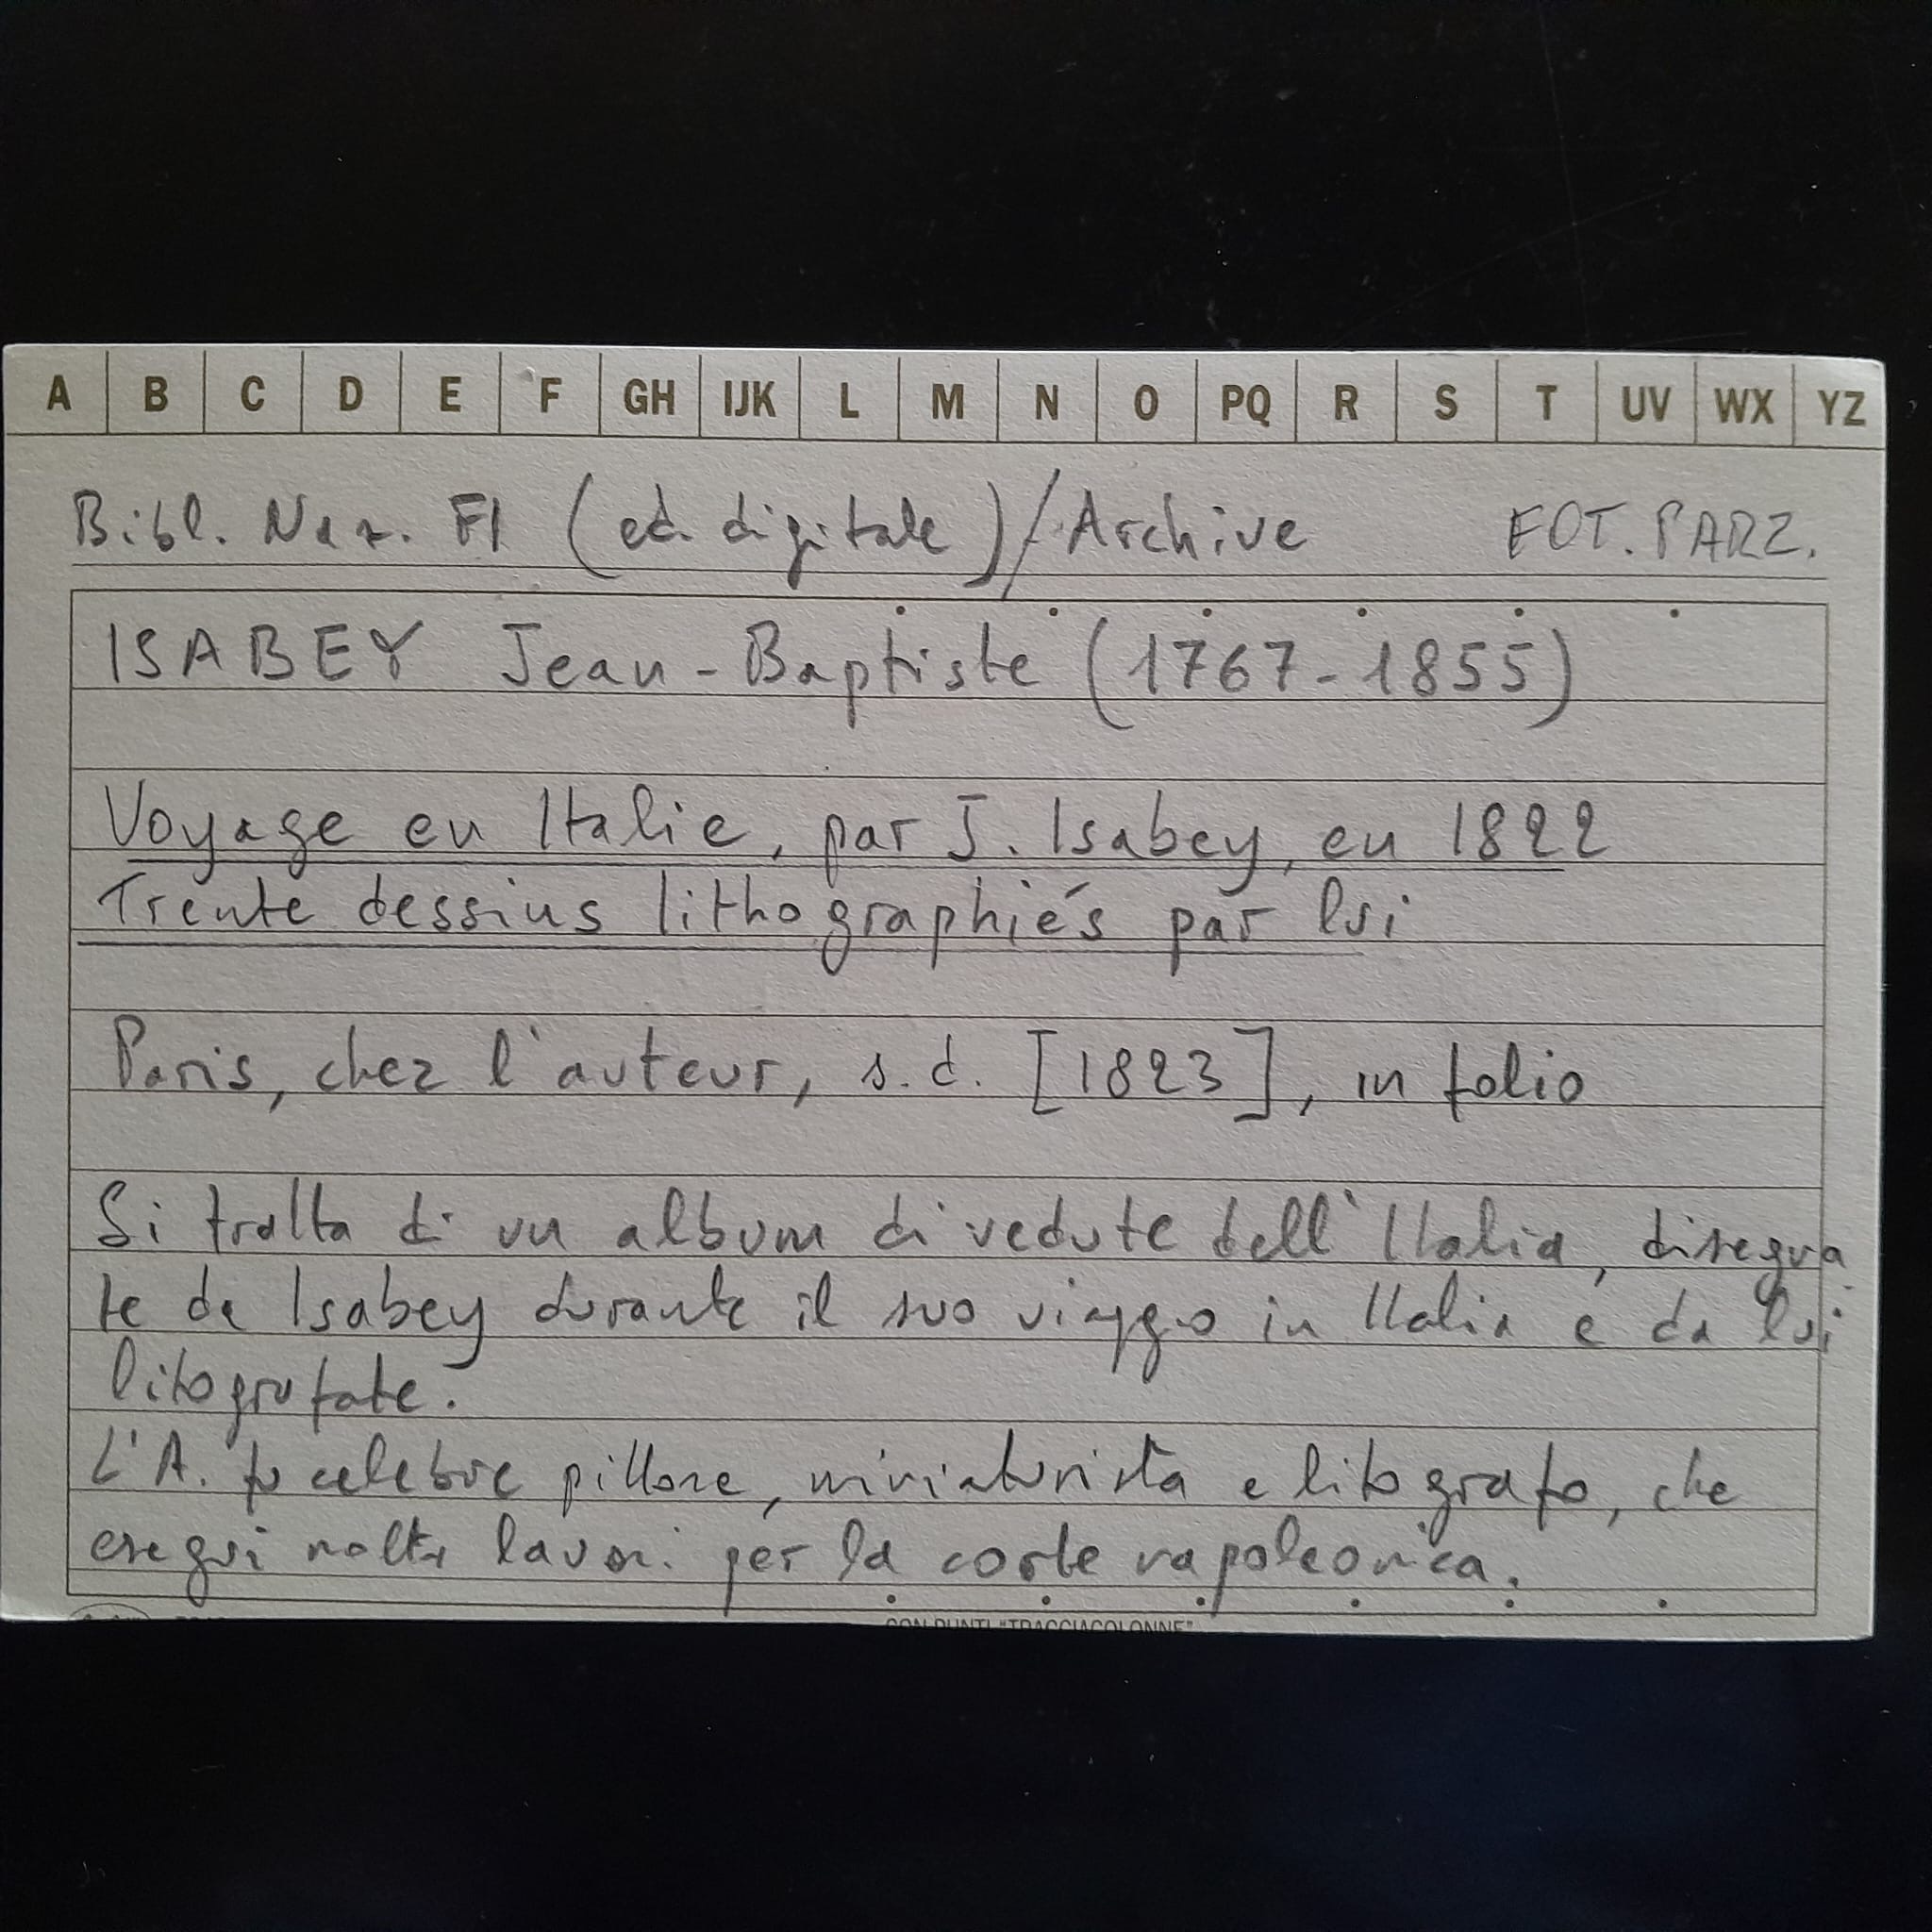 A B C D E F GH IJK L M N O PQ R S T UV WX YZ
Bibl. Naz. FI (ed. digitale) / Archive FOT. PARZ.
ISABEY Jean-Baptiste (1767-1855)
Voyage en Italie, par J. Isabey, en 1822
Trente dessins lithographiés par lui
Paris, chez l'auteur, s.d. [1823], in folio
Si tratta di un album di vedute dell'Italia, disegna
te da Isabey durante il suo viaggio in Italia e da lui
litografate.
L'A. fu celebre pittore, miniaturista e litografo, che
eseguì molti lavori per la corte napoleonica.
CON PUNTI "TRACCIACOLONNE"